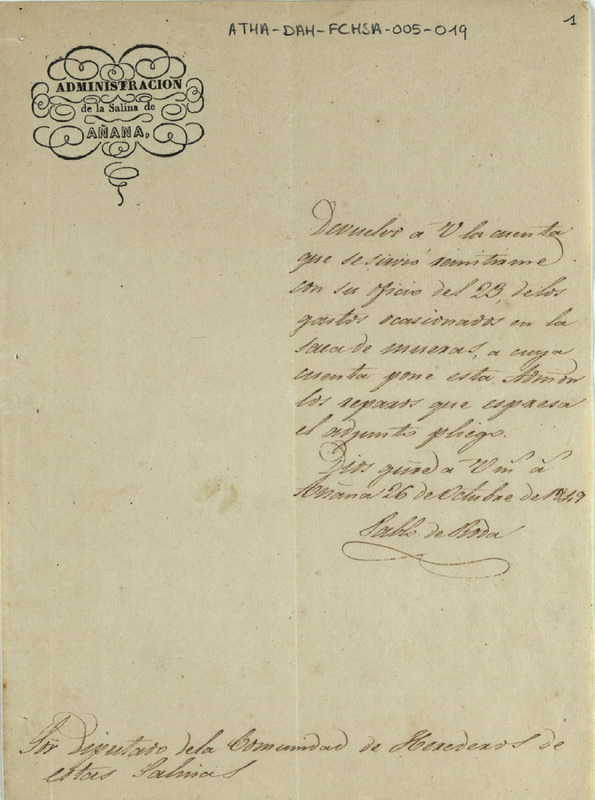 ATHA-DAH-FCHSA-005-019
1
ADMINISTRACION
de la Salina de
AÑANA,
Devuelvo á V la cuenta
que se sirvió remitirme
con su oficio del 23, de los
gastos ocasionados en la
saca de mueras, a cuya
cuenta pone esta Admon
los reparos que espresa
el adjunto pliego.
Dios gũe a V m.s a.s
Añana 26 de Octubre de 1849
Pablo de Roda
Sor Diputado de la Comunidad de Herederos de
estas Salinas